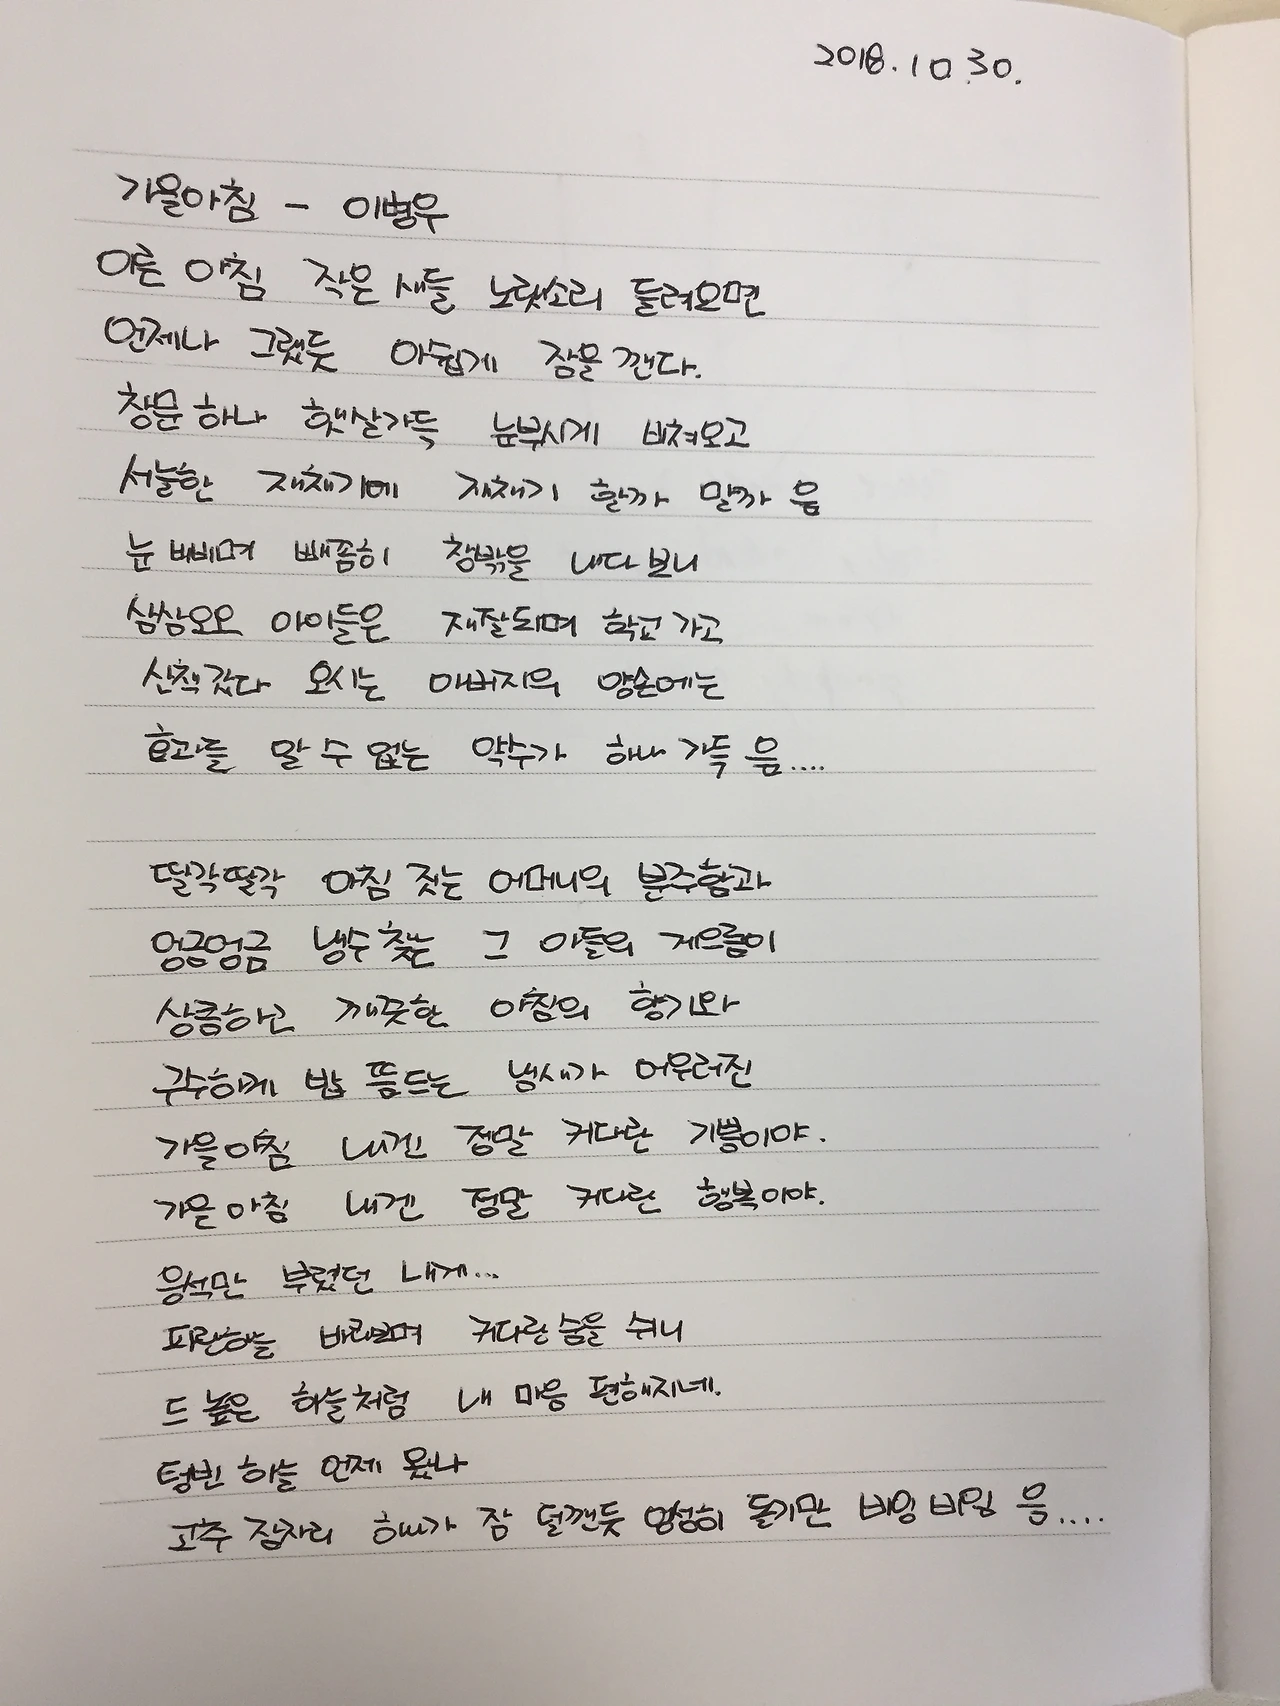 2018.10.30.
가을아침 - 이병우
이른 아침 작은 새들 노랫소리 들려오면
언제나 그랬듯 아쉽게 잠을 깬다.
창문 하나 햇살가득 눈부시게 비쳐오고
서늘한 재채기에 재채기 할까 말까 음
눈 비비며 빼꼼히 창밖을 내다 보니
삼삼오오 아이들은 재잘되며 학교 가고
산책갔다 오시는 아버지의 양손에는
효과를 알 수 없는 약수가 하나 가득 음....
딸각딸각 아침 짓는 어머니의 분주함과
엉금엉금 냉수 찾는 그 아들의 게으름이
상큼하고 깨끗한 아침의 향기와
구수하게 밥 뜸드는 냄새가 어우러진
가을아침 내겐 정말 커다란 기쁨이야.
가을 아침 내겐 정말 커다란 행복이야.
응석만 부렸던 내게...
파란하늘 바라보며 커다란 숨을 쉬니
드 높은 하늘처럼 내 마음 편해지네.
텅빈 하늘 언제 왔나
고추 잠자리 하나가 잠 덜깬듯 엉성히 돌기만 비잉 비잉 음....